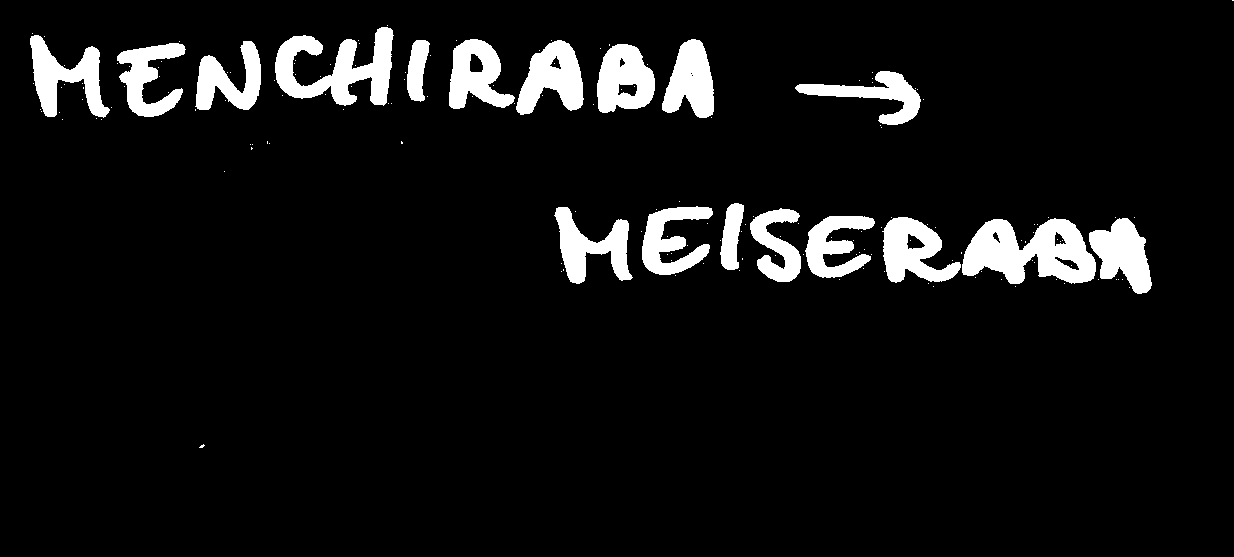 MENCHIRABA →
MEISERABA